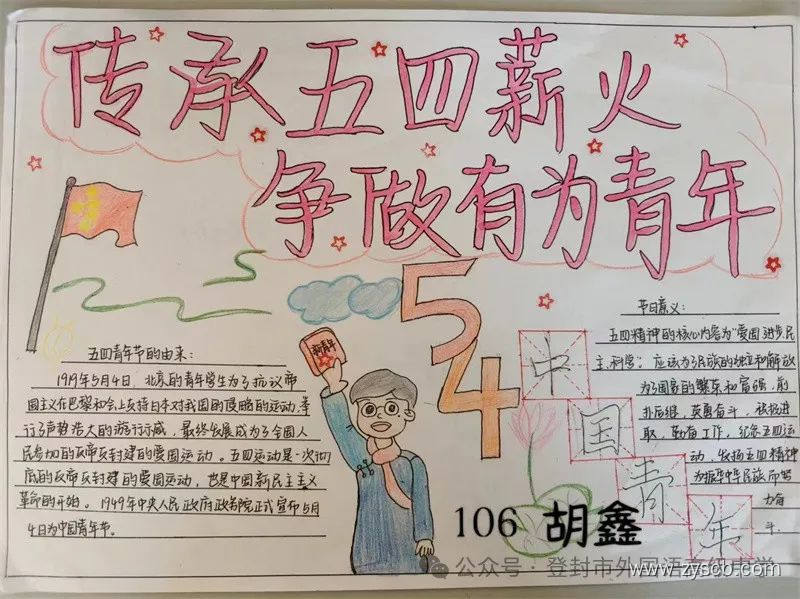 传承五四薪火
争做有为青年
54
新青年
五四青年节的由来：
1919年5月4日，北京的青年学生为了抗议帝
国主义在巴黎和会上支持日本对我国的侵略的运动，举
行了声势浩大的游行示威，最终发展成为了全国人
民参加的反帝反封建的爱国运动。五四运动是一次彻
底的反帝反封建的爱国运动，也是中国新民主主义
革命的开始。1949年中央人民政府政务院正式宣布5月
4日为中国青年节。
节日意义：
五四精神的核心内容为"爱国进步，民
主，科学；应该为了民族的独立和解放
为了国家的繁荣和富强，前
扑后继，英勇奋斗，积极进
取，勤奋工作，纪念五四运
动，发扬五四精神
为振华中华民族而努
力奋
斗
中
国
青
年
106 胡鑫
公众号·登封市外国语
www.zyscb.com